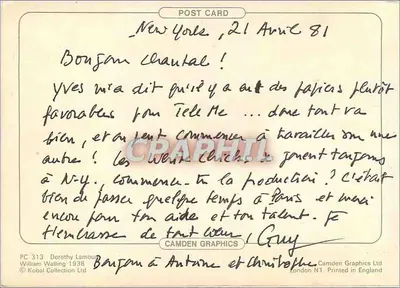 POST CARD
New York, 21 Avril 81
Bonjour Chantal!
Yves m'a dit qu'il y a eu des papiers plutôt
favorables pour Tele Me ... donc tout va
bien, et on peut commencer à travailler sur une
autre! Les White Chicks se jouent toujours
à N-Y, commence-tu la production? C'était
bien de passer quelque temps à Paris et merci
encore pour ton aide et ton talent. Je
t'embrasse de tout cœur, Guy
CAMDEN GRAPHICS
Bonjour à Antoine et Christophe
PC 313 Dorothy Lamour
William Walling 1936
© Kobal Collection Ltd
Camden Graphics Ltd
London N1. Printed in England
CPAPHIL